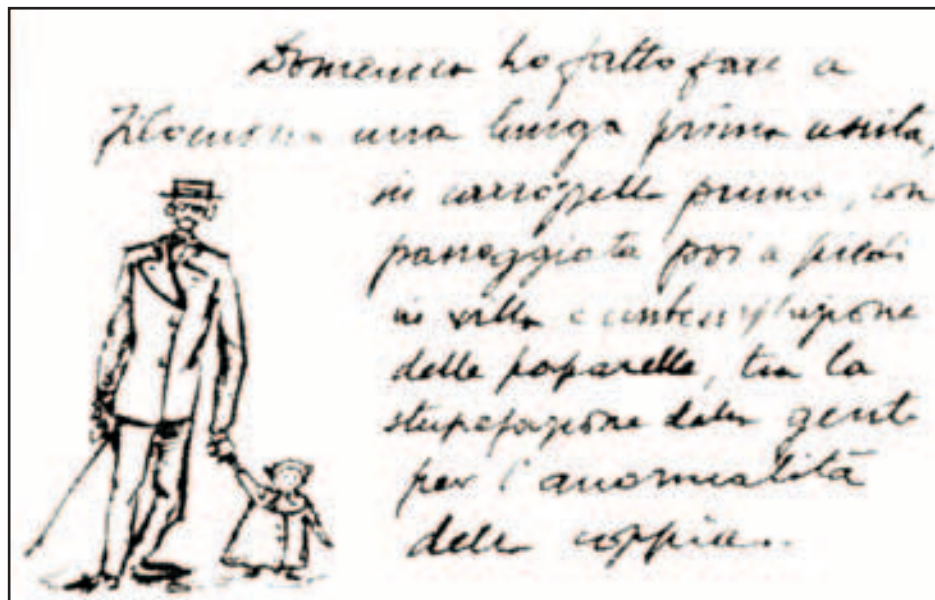 Domenica ho fatto fare a
Filomena una lunga prima uscita,
in carrozzella prima, con
passeggiata poi a piedi
in villa e contemplazione
delle paparelle, tra la
stupefazione della gente
per l'anormalità
della coppia..